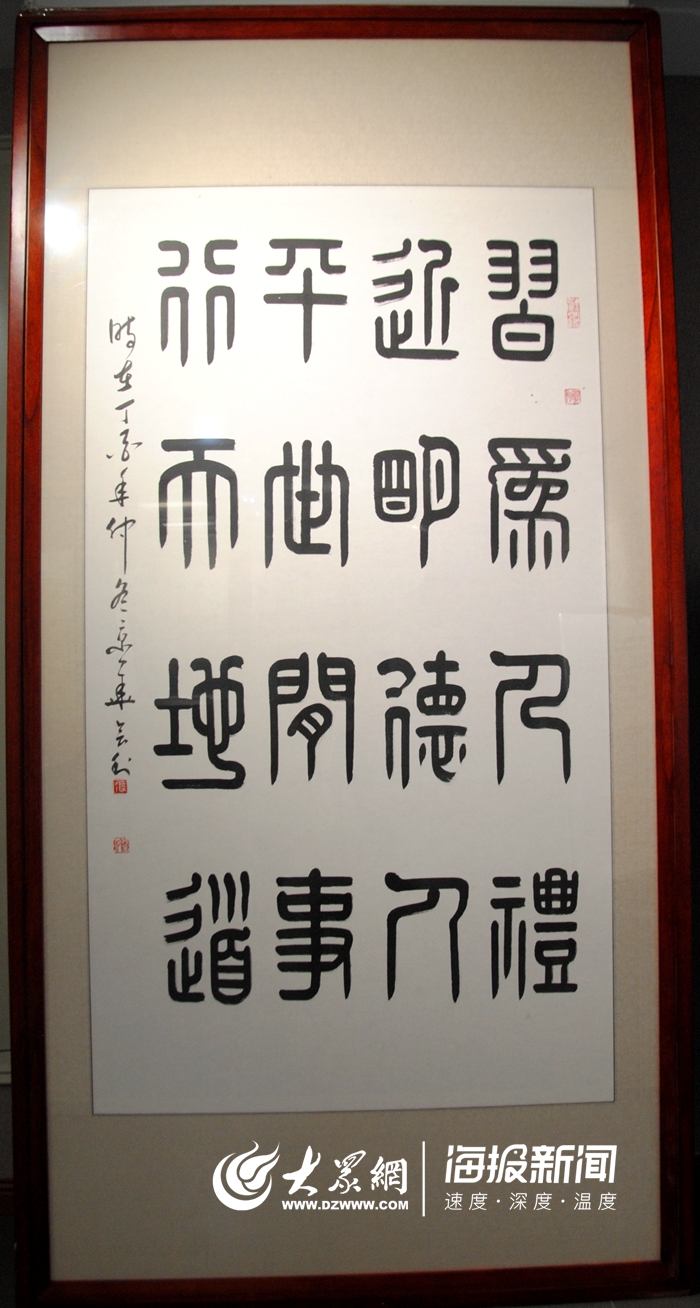 習爲人禮
近明德人
平世閒事
行天地道
時在丁酉年仲冬京華
大眾網
WWW.DZWWW.COM
海报新闻
速度·深度·温度